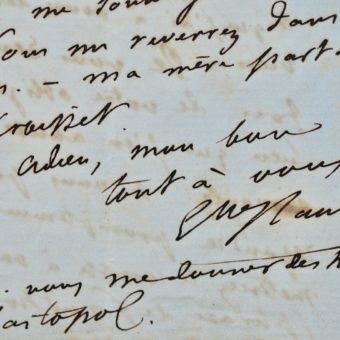 me
vous me reverrez dans
. – ma mère part
Croisset
adieu, mon bon
tout à vous
Gve Flau
. vous me donner des
astopol.